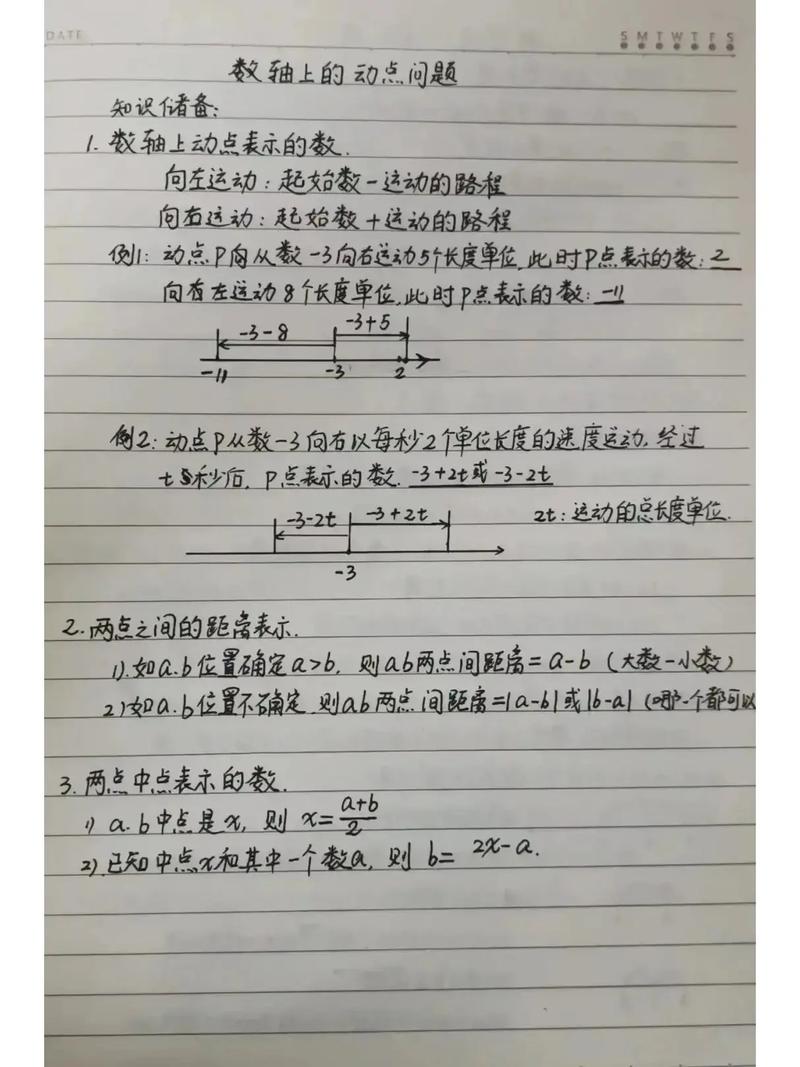 DATE
S M T W T F S
数轴上的动点问题
知识储备:
1. 数轴上动点表示的数.
向左运动: 起始数-运动的路程
向右运动: 起始数+运动的路程
例1: 动点P向从数-3向右运动5个长度单位, 此时P点表示的数: 2
向右左运动8个长度单位, 此时P点表示的数: -11
-3-8 -3+5
-11 -3 2
例2: 动点P从数-3向右以每秒2个单位长度的速度运动, 经过
t 5秒后, P点表示的数. -3+2t或-3-2t
-3-2t -3+2t 2t: 运动的总长度单位.
-3
2. 两点之间的距离表示.
1). 如a.b位置确定a>b, 则ab两点间距离=a-b (大数-小数)
2) 如a.b位置不确定, 则ab两点间距离=|a-b|或|b-a| (哪一个都可以
3. 两点中点表示的数.
1) a.b中点是x, 则 x=\frac{a+b}{2}
2). 已知中点x和其中一个数a, 则 b= 2x-a.